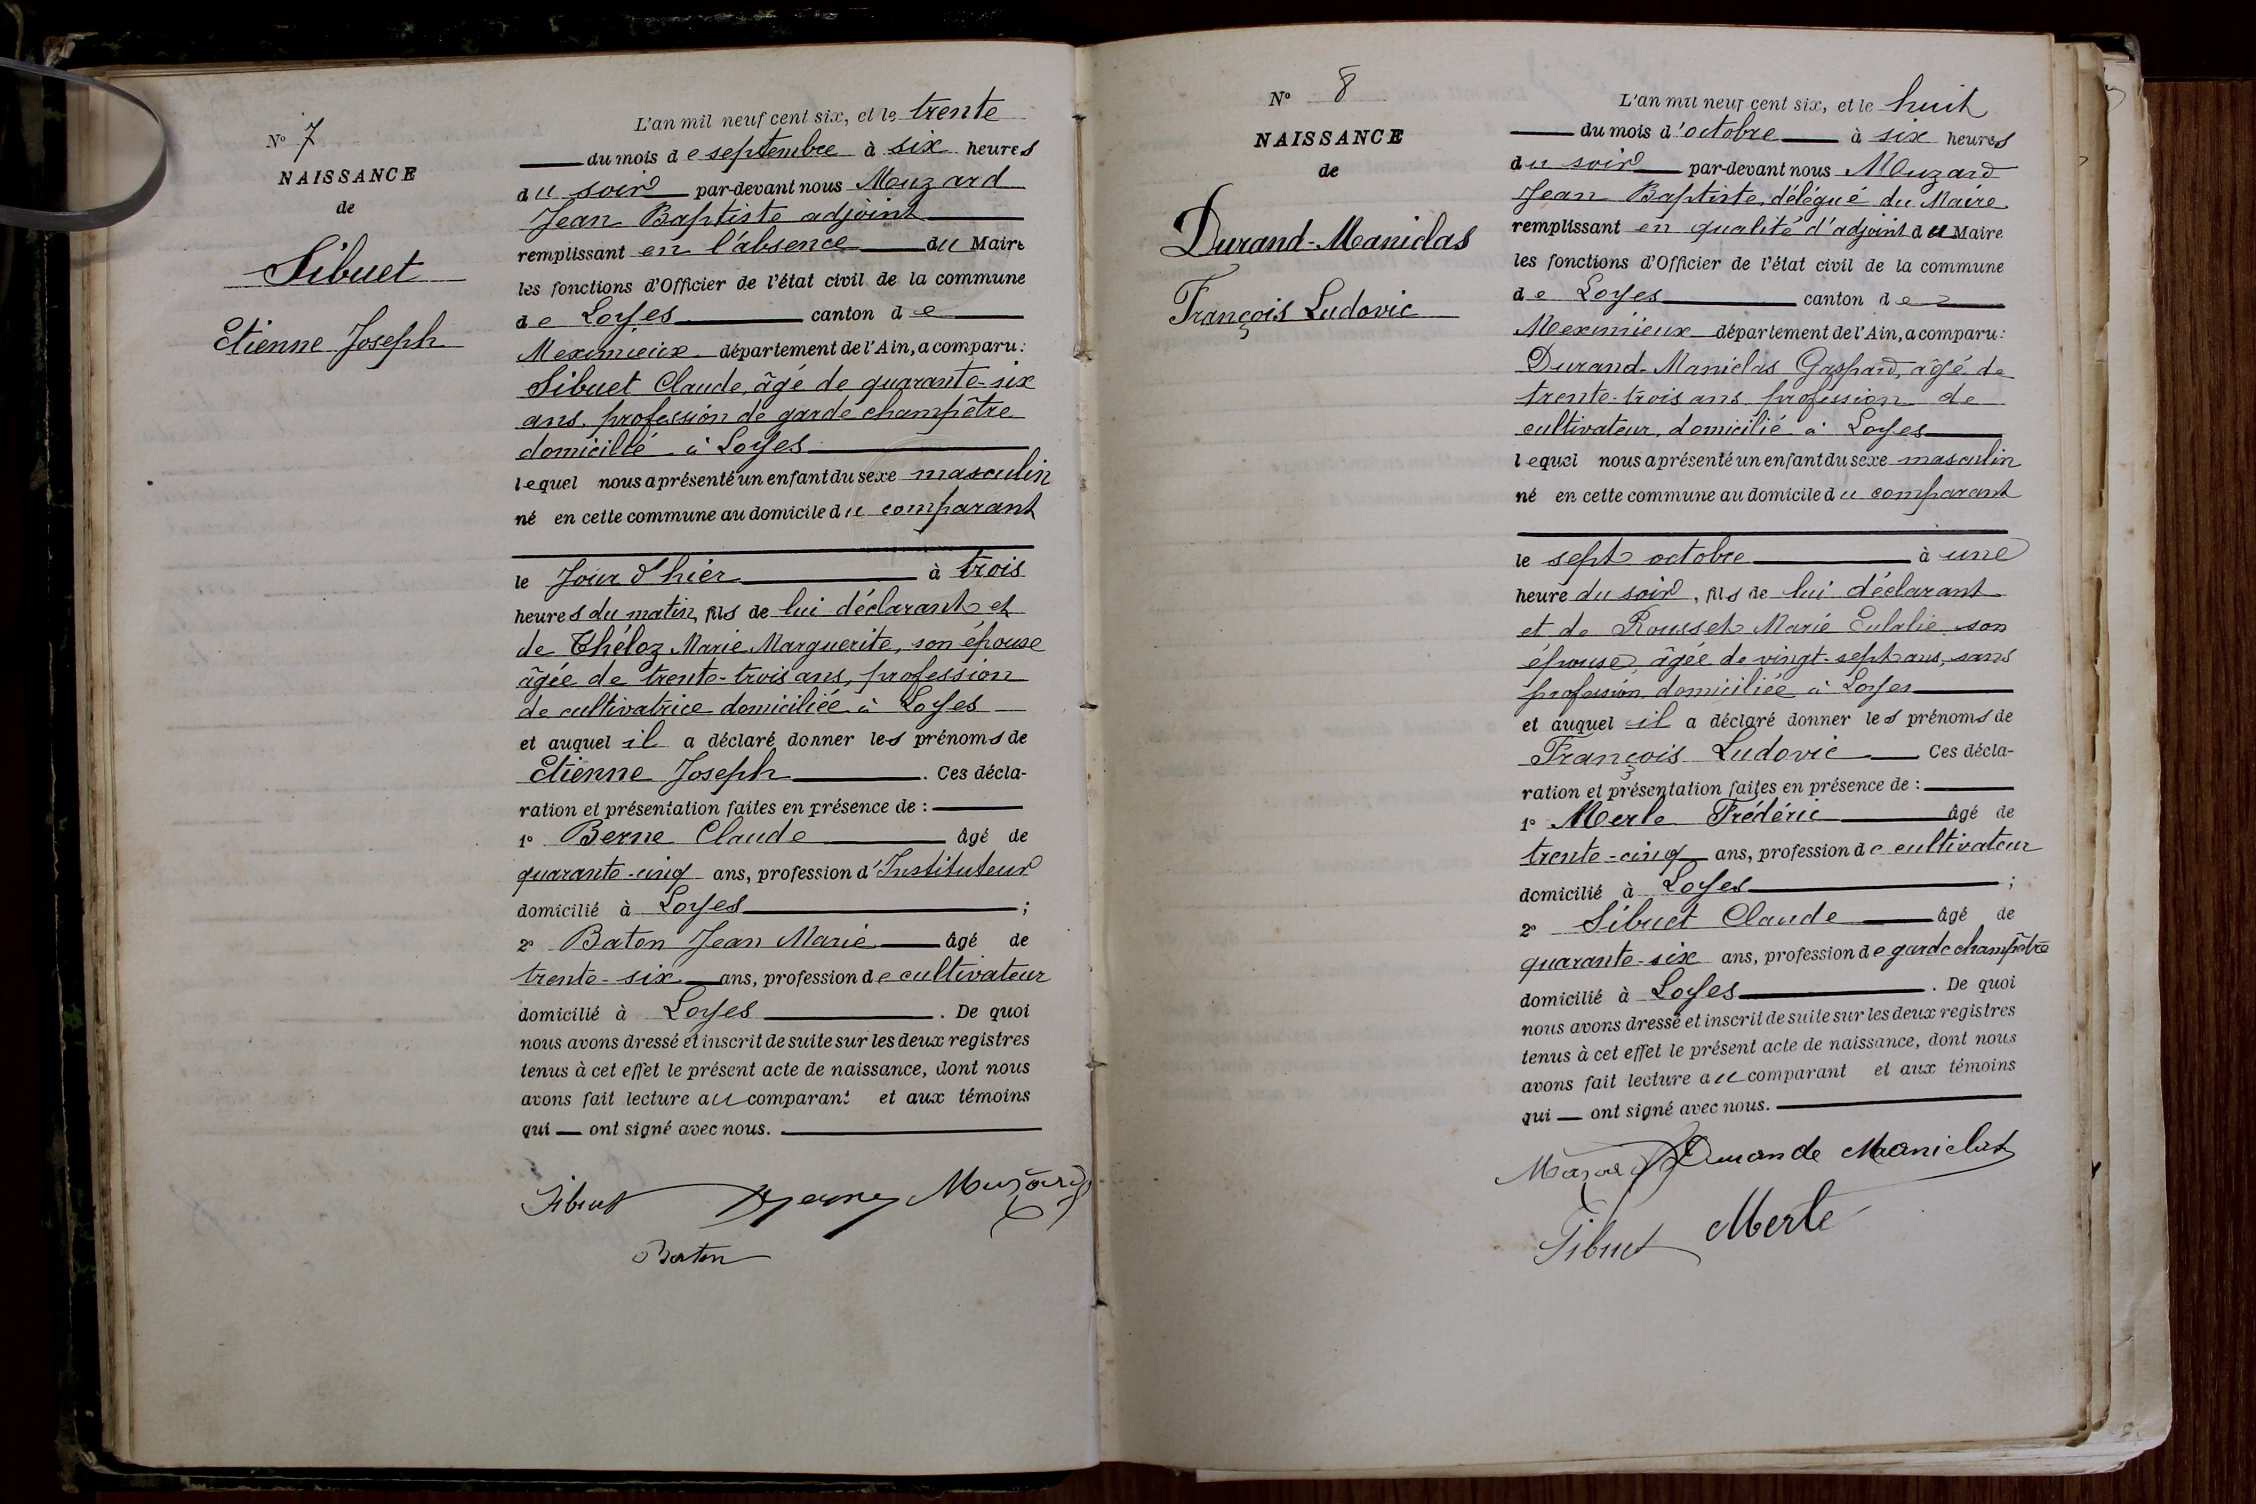 N° 7
NAISSANCE
de
Sibuet
Etienne Joseph
L'an mil neuf cent six, et le trente
du mois de septembre à six heures
du soir par-devant nous Mouzard
Jean Baptiste adjoint
remplissant en l'absence du Maire
les fonctions d'Officier de l'état civil de la commune
de Loyes canton de
Meximieux département de l'Ain, a comparu:
Sibuet Claude, âgé de quarante-six
ans, profession de garde champêtre
domicilié à Loyes
lequel nous a présenté un enfant du sexe masculin
né en cette commune au domicile du comparant
le jour d'hier à trois
heures du matin, fils de lui déclarant et
de Théloz Marie Marguerite, son épouse
âgée de trente-trois ans, profession
de cultivatrice domiciliée à Loyes
et auquel il a déclaré donner les prénoms de
Etienne Joseph. Ces décla-
ration et présentation faites en présence de :
1° Berne Claude âgé de
quarante-cinq ans, profession d'Instituteur
domicilié à Loyes ;
2° Baton Jean Marie âgé de
trente-six ans, profession de cultivateur
domicilié à Loyes. De quoi
nous avons dressé et inscrit de suite sur les deux registres
tenus à cet effet le présent acte de naissance, dont nous
avons fait lecture au comparant et aux témoins
qui — ont signé avec nous.
Sibuet Berne Muzard
Baton
N° 8
NAISSANCE
de
Durand-Maniclas
François Ludovic
L'an mil neuf cent six, et le huit
du mois d'octobre à six heures
du soir par-devant nous Mouzard
Jean Baptiste, délégué du Maire
remplissant en qualité d'adjoint du Maire
les fonctions d'Officier de l'état civil de la commune
de Loyes canton de
Meximieux département de l'Ain, a comparu:
Durand-Maniclas Gaspard, âgé de
trente-trois ans, profession de
cultivateur, domicilié à Loyes
lequel nous a présenté un enfant du sexe masculin
né en cette commune au domicile du comparant
le sept octobre à une
heure du soir, fils de lui déclarant
et de Rousset Marie Eulalie son
épouse, âgée de vingt-sept ans, sans
profession, domiciliée à Loyes
et auquel il a déclaré donner les prénoms de
François Ludovic Ces décla-
ration et présentation faites en présence de :
1° Merle Frédéric âgé de
trente-cinq ans, profession de cultivateur
domicilié à Loyes ;
2° Sibuet Claude âgé de
quarante-six ans, profession de garde champêtre
domicilié à Loyes. De quoi
nous avons dressé et inscrit de suite sur les deux registres
tenus à cet effet le présent acte de naissance, dont nous
avons fait lecture au comparant et aux témoins
qui — ont signé avec nous.
Durande Maniclas
Sibuet Merle